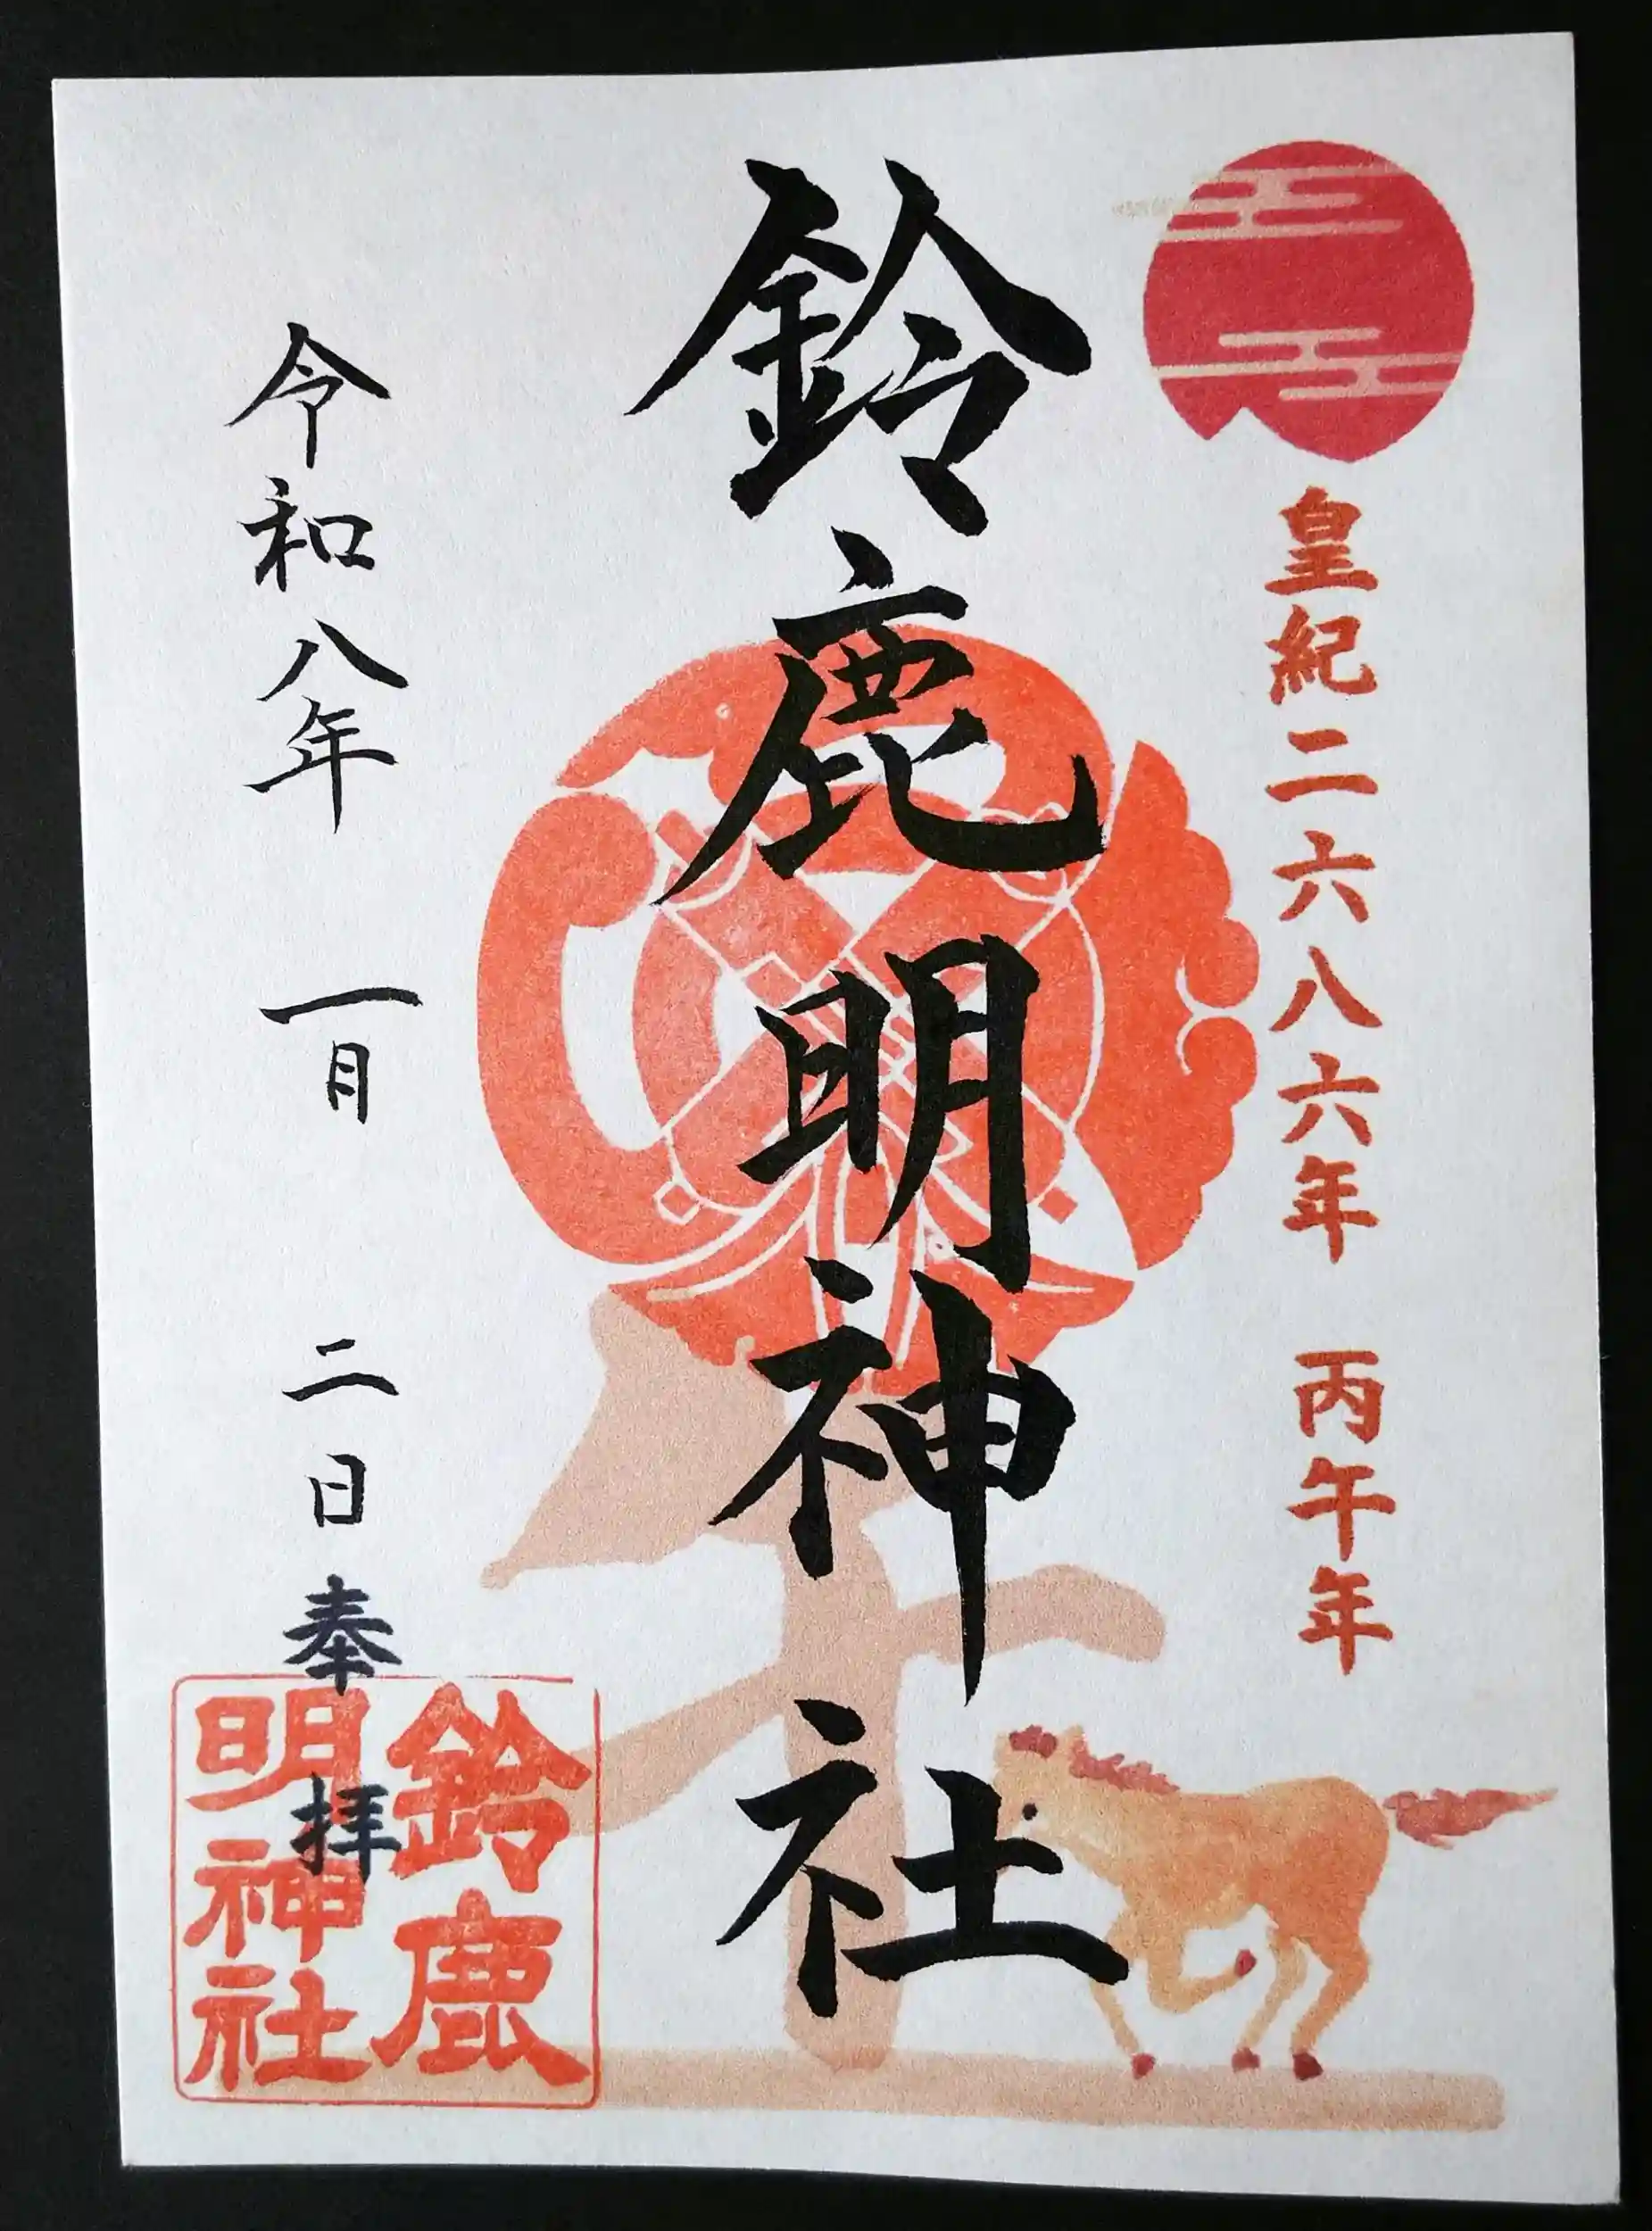 皇紀二六八六年 丙午年
鈴鹿明神社
令和八年 一月 二日 奉拝
鈴鹿
明神社